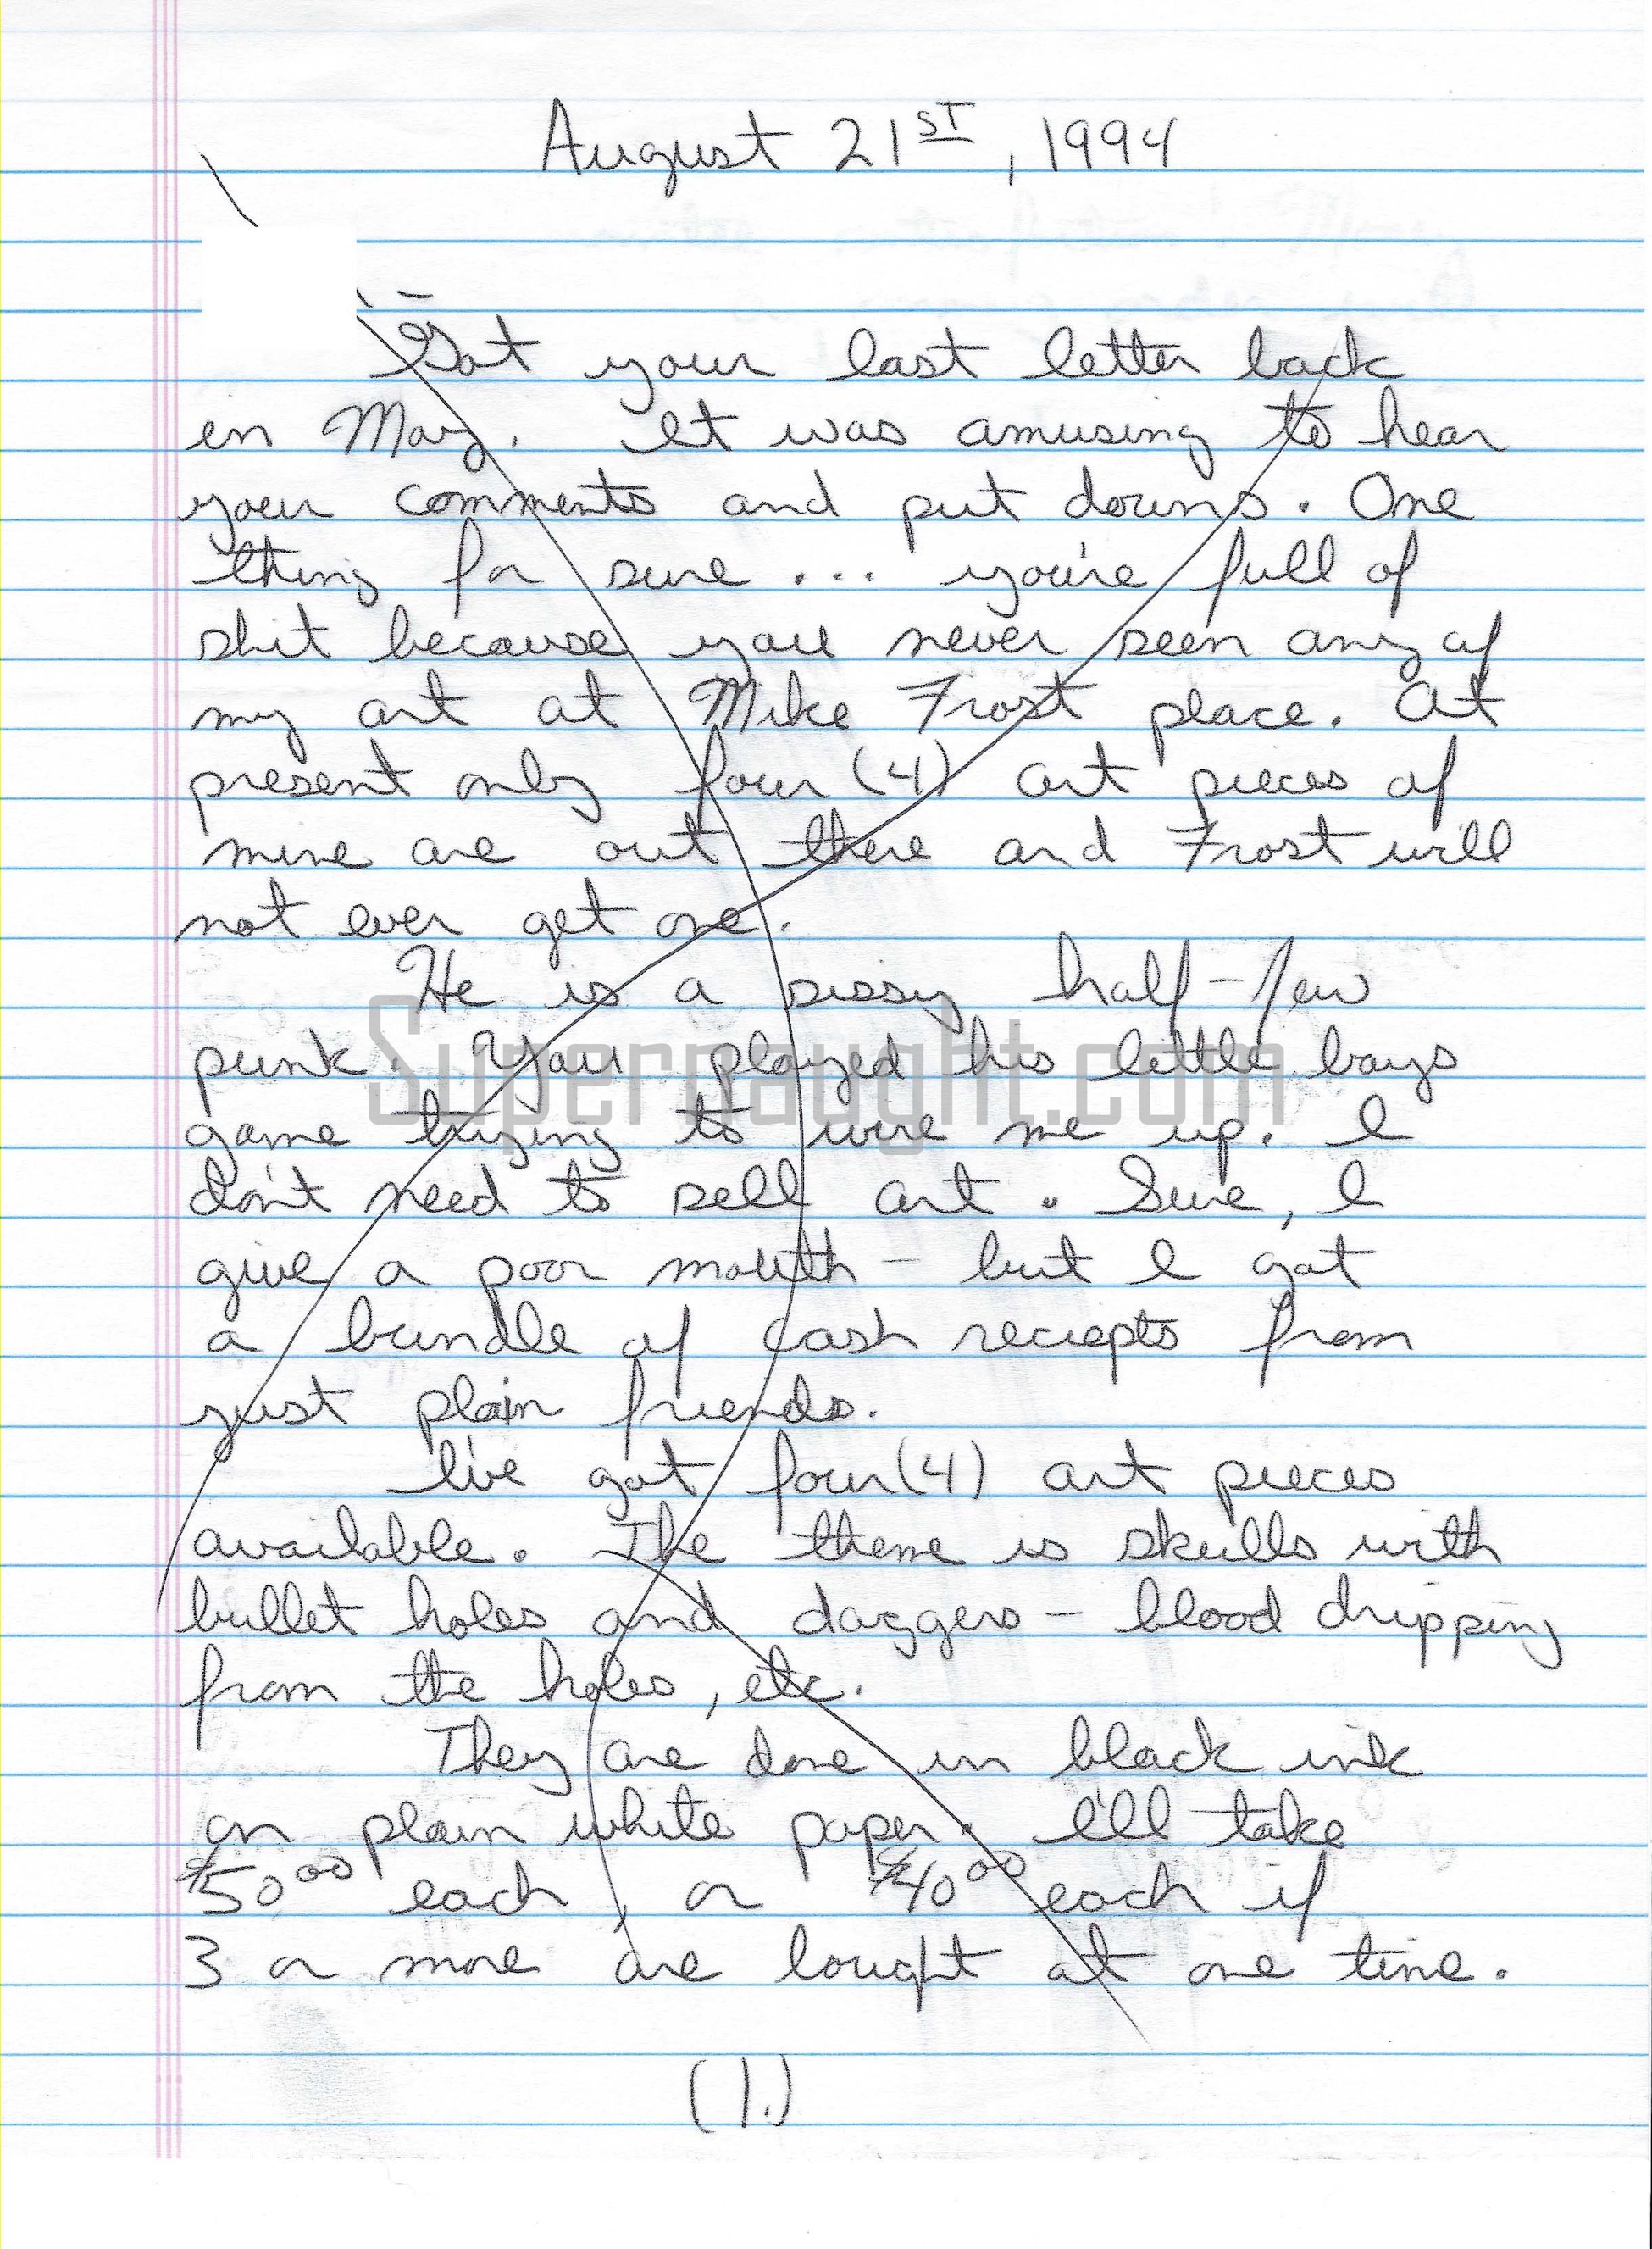 August 21ST, 1994
Got your last letter back
in May. It was amusing to hear
your comments and put downs. One
thing for sure ... you're full of
shit because you never seen any of
my art at Mike Frost place. At
present only four (4) art pieces of
mine are out there and Frost will
not ever get one.
He is a sissy half-Jew
punk. You played his little boys
game trying to wire me up. I
don't need to sell art. Sure, I
give a poor mouth - but I got
a bundle of cash reciepts from
just plain friends.
I've got four (4) art pieces
available. The theme is skulls with
bullet holes and daggers - blood dripping
from the holes, etc.
They are done in black ink
on plain white paper. I'll take
$50.00 each, or $40.00 each if
3 or more are bought at one time.
(1.)
Supernaught.com